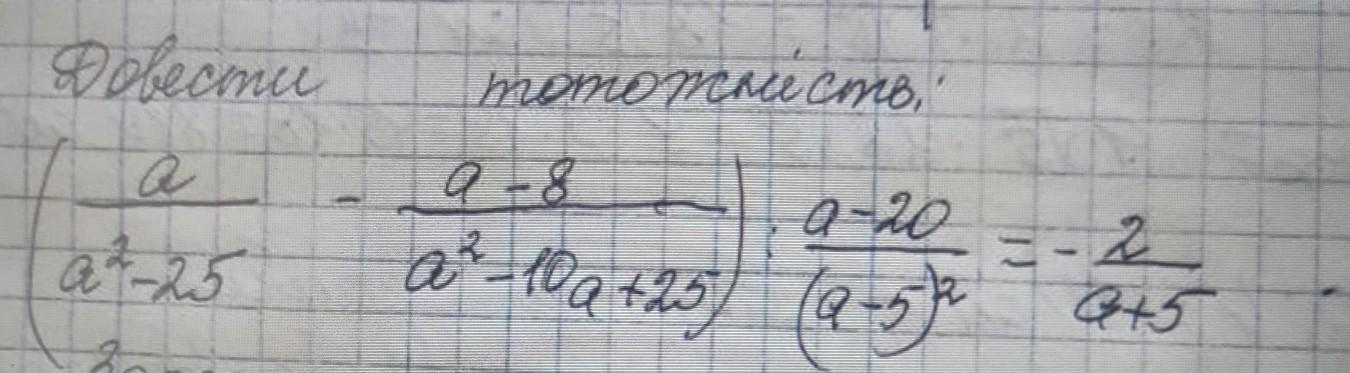 Довести тотожність:
( a / a² - 25 - a - 8 / a² - 10a + 25 ) : a - 20 / (a - 5)² = - 2 / a + 5 .